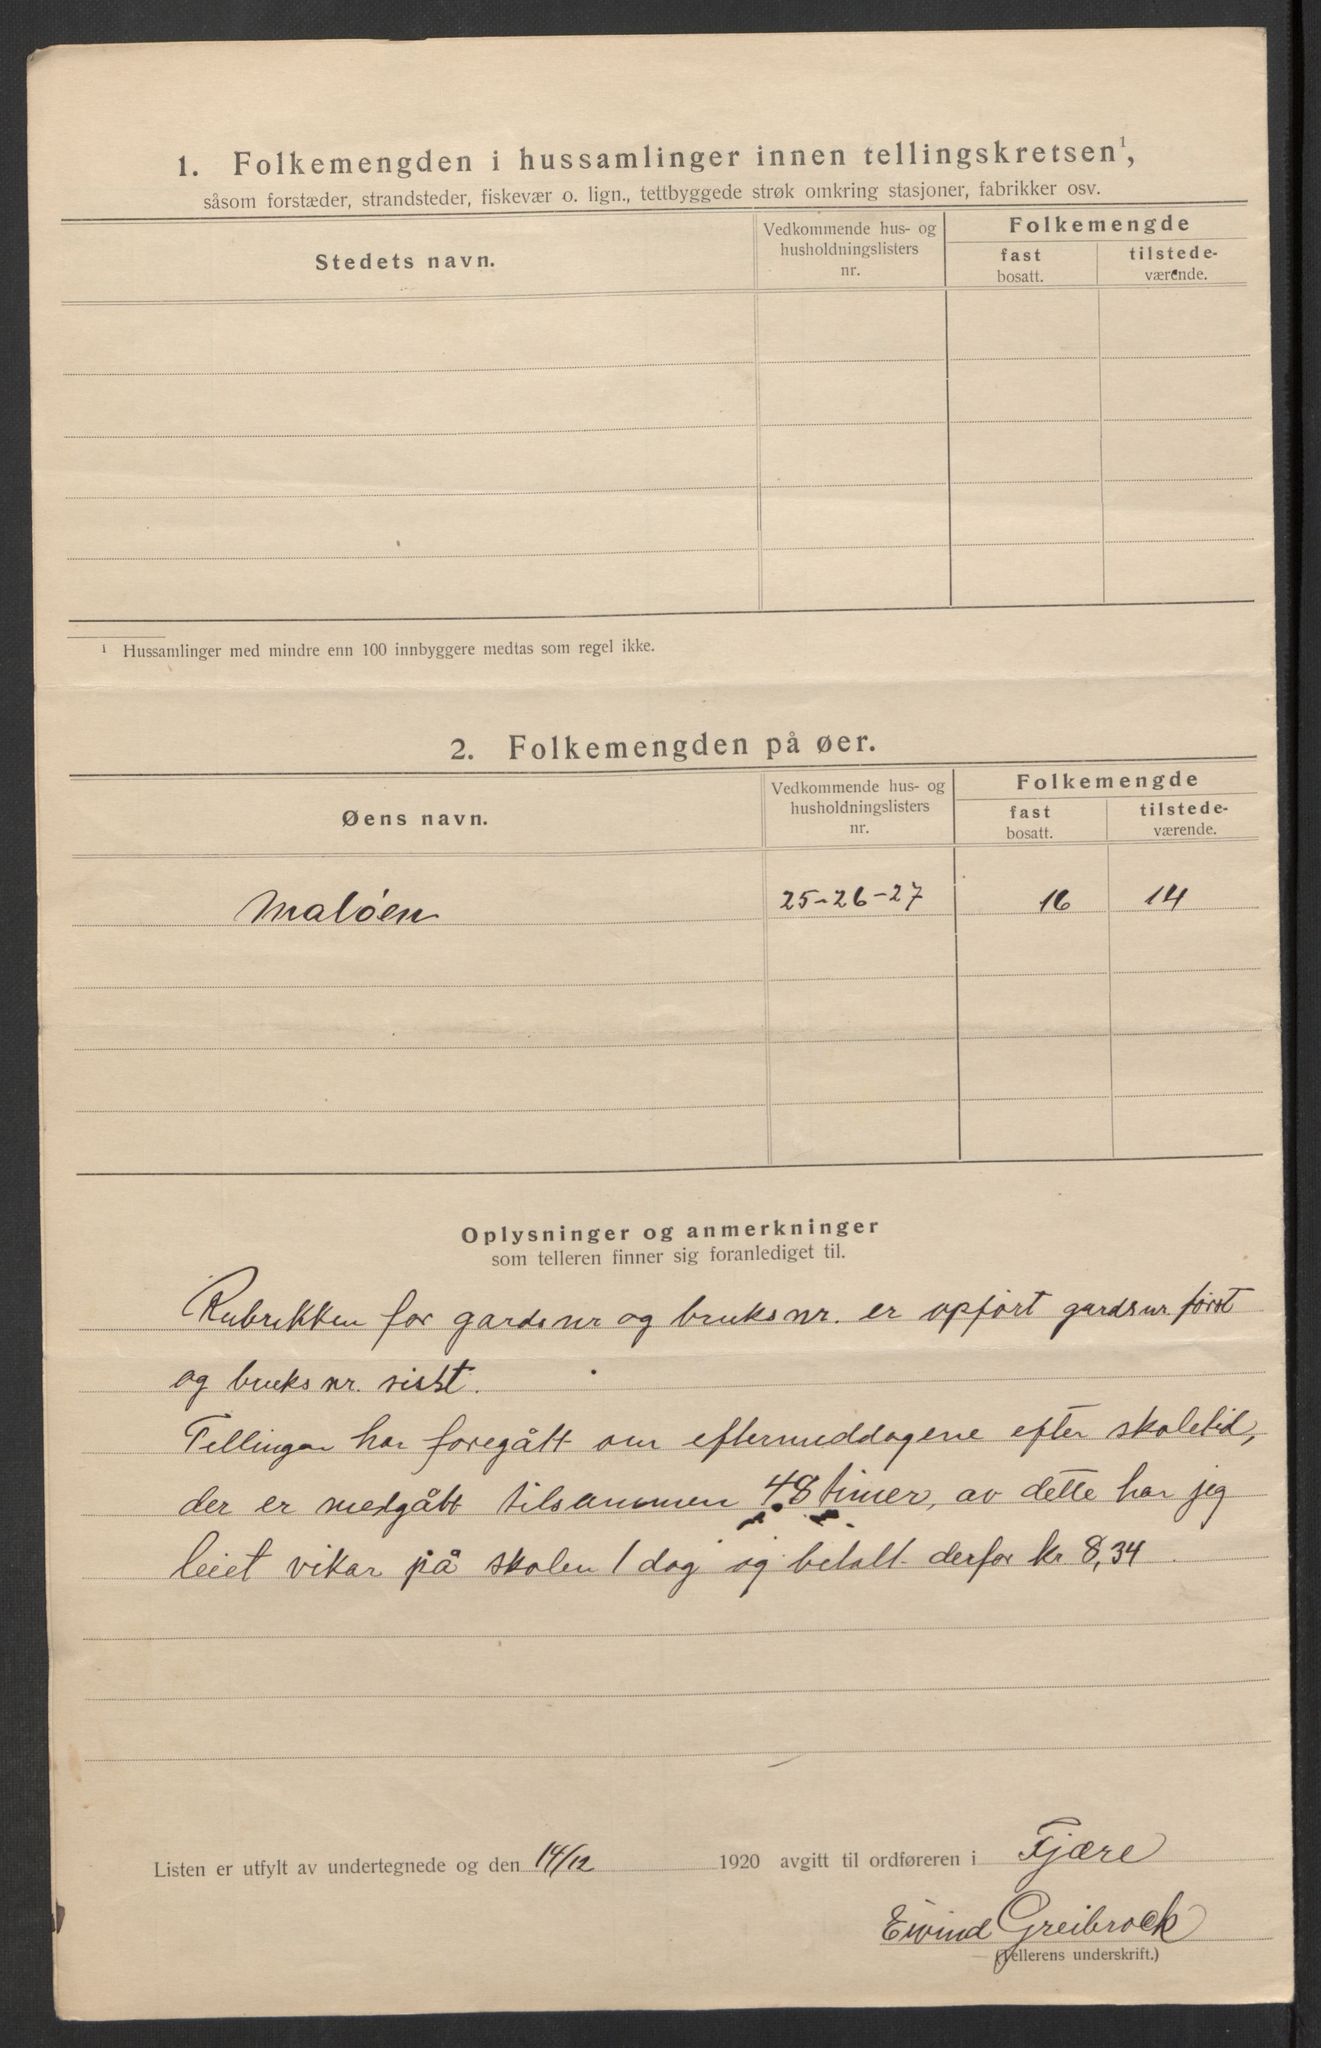 1. Folkemengden i hussamlinger innen tellingskretsen¹,
såsom forstæder, strandsteder, fiskevær o. lign., tettbyggede strøk omkring stasjoner, fabrikker osv.
Stedets navn.
Vedkommende hus- og
husholdningslisters
nr.
Folkemengde
fast
bosatt.
tilstede-
værende.
¹ Hussamlinger med mindre enn 100 innbyggere medtas som regel ikke.
2. Folkemengden på øer.
Øens navn.
Vedkommende hus- og
husholdningslisters
nr.
Folkemengde
fast
bosatt.
tilstede-
værende.
Maløen 25-26-27 16 14
Oplysninger og anmerkninger
som telleren finner sig foranlediget til.
Rubrikken for gardsnr og bruksnr. er opført gardsnr først
og bruksnr. sisst.
Tellingen har foregått om eftermiddagene efter skoletid,
der er medgått tilsammen 48 timer, av dette har jeg
leiet vikar på skolen 1 dag og betalt derfor kr 8,34.
Listen er utfylt av undertegnede og den 14/12 1920 avgitt til ordføreren i Fjære
Eivind Greibrock
(Tellerens underskrift.)